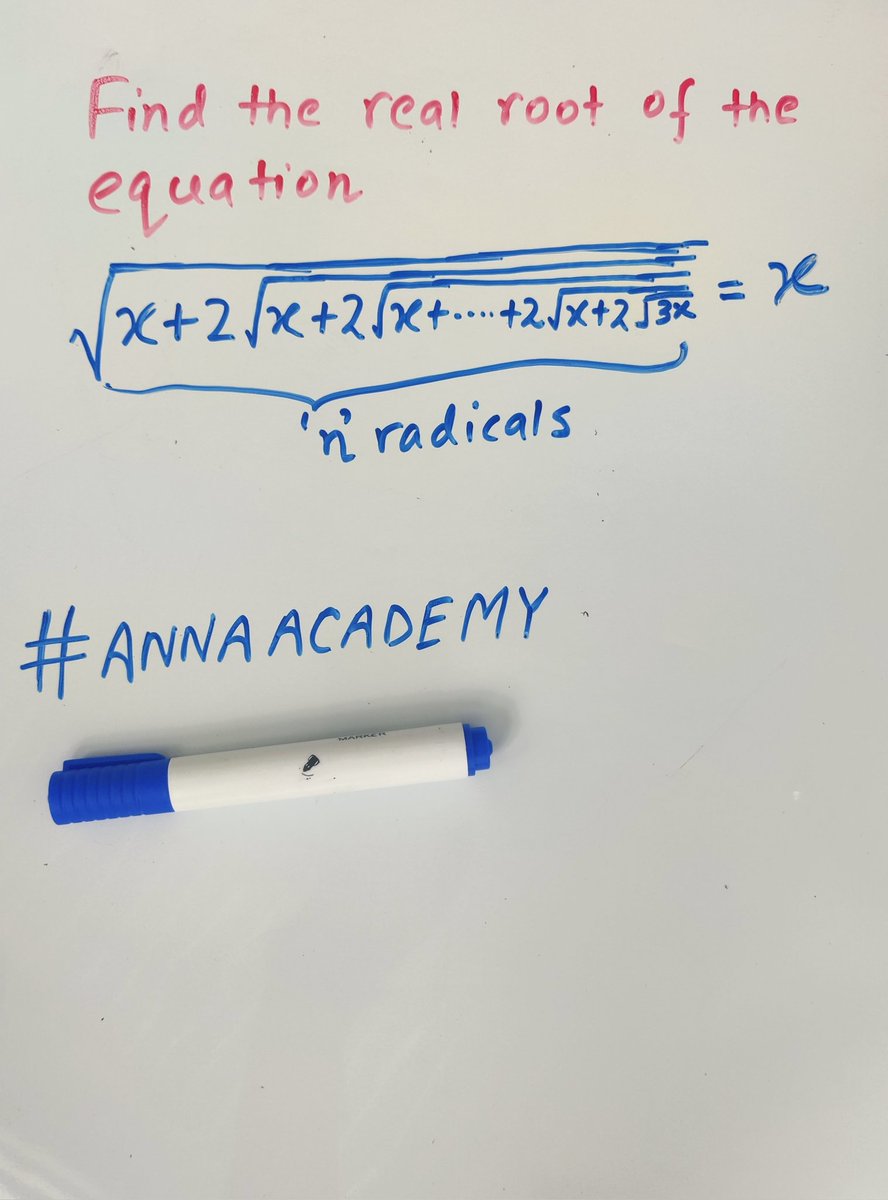 Find the real root of the
equation
√(x+2√(x+2√(x+.....+2√(x+2√(3x))))) = x
'n' radicals
#ANNA ACADEMY
MARKER